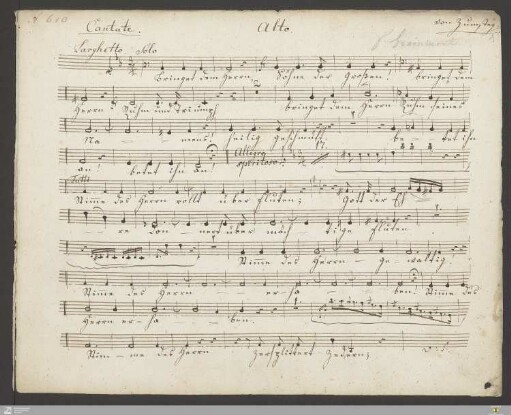 Cantate. Alto von Zumsteg
Larghetto Solo
bringet dem Herrn, Söhne der Großen! bringet dem
Herrn Ruhm und Triumph bringet dem Herrn Ruhm seines
Na - mens! heilig geschmückt be - tet ihn
an! betet ihn an! Allegro
Tutti
Stimme des Herrn rollt über Fluten; Gott der Eh
re don - nert über mäch - tige Fluten
Stimme des Herrn - ge - waltig!
Stimme des Herrn - er - ha - ben. Stimme des
Herrn er - ha - ben.
Stim - me des Herrn zersplittert Zedern;